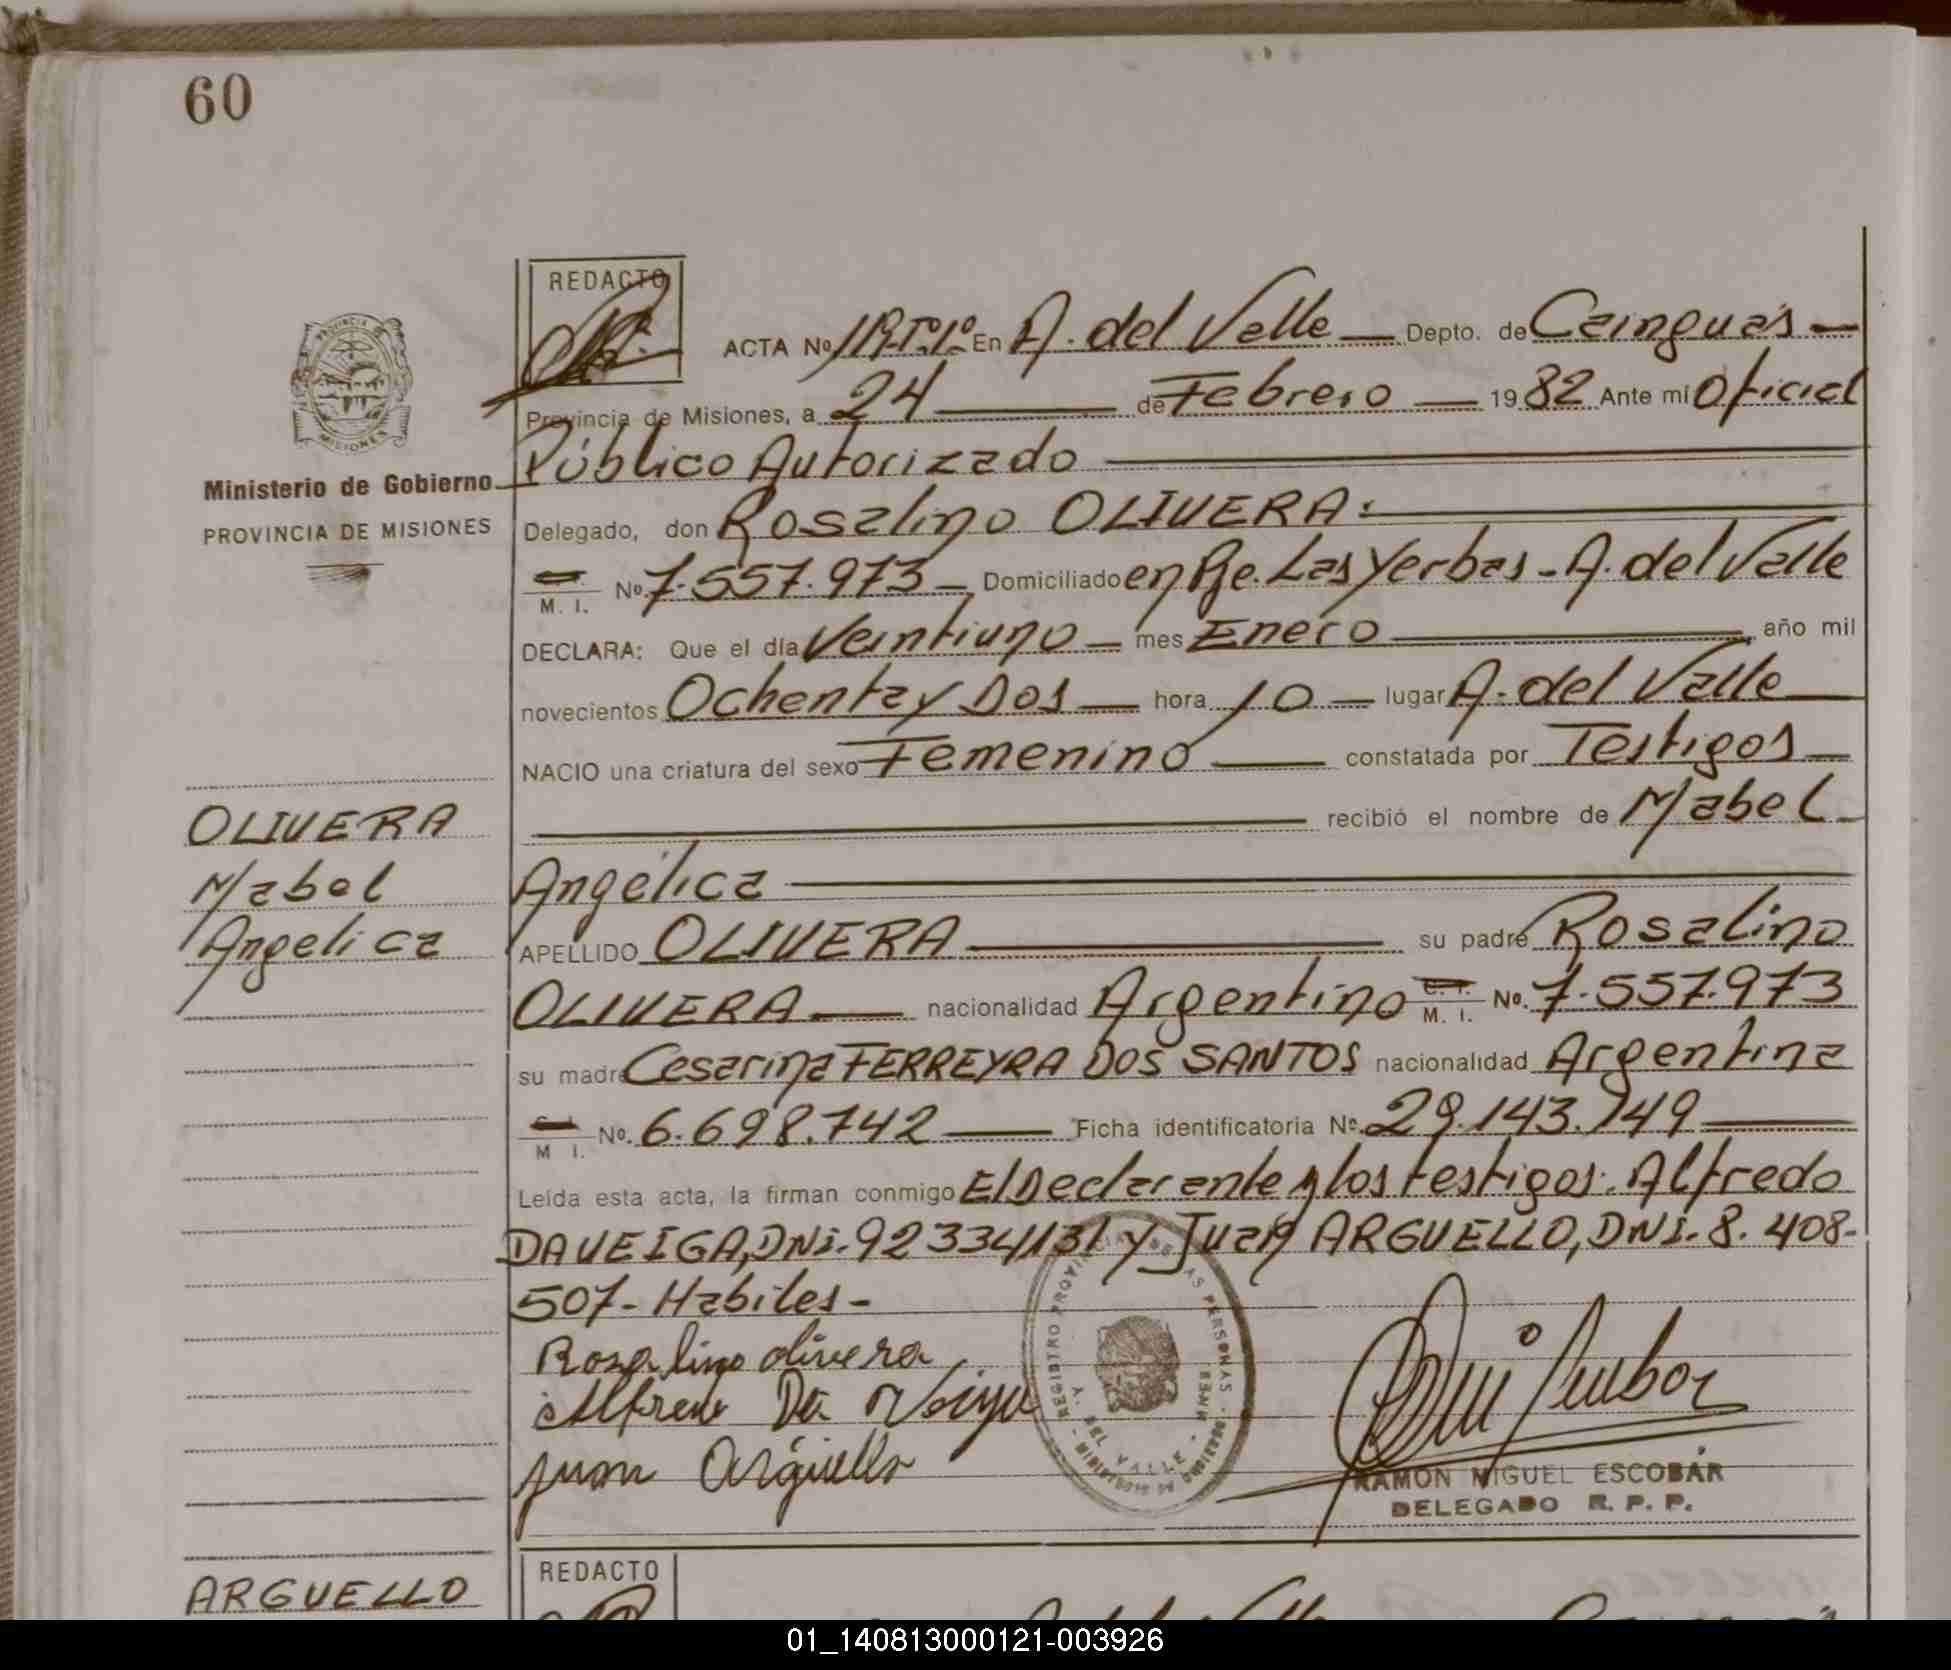 60
REDACTO
ACTA Nº 119-Tº1º En A. del Valle — Depto. de Cainguás —
Provincia de Misiones, a 24 — de Febrero — 1982 Ante mi Oficial
Público Autorizado
Ministerio de Gobierno
PROVINCIA DE MISIONES
Delegado, don Rosalino OLIVERA:
M. I. Nº 7.557.973 — Domiciliado en Pje. Las Yerbas - A. del Valle
DECLARA: Que el día Veintiuno — mes Enero — año mil
novecientos Ochenta y Dos — hora 10 — lugar A. del Valle
NACIO una criatura del sexo Femenino — constatada por Testigos —
recibió el nombre de Mabel
Angélica
APELLIDO OLIVERA — su padre Rosalino
OLIVERA — nacionalidad Argentino C. I. M. I. Nº. 7.557.973
su madre Cesarina FERREYRA DOS SANTOS nacionalidad Argentina
M I. Nº. 6.698.742 — Ficha identificatoria Nº. 29.143.749
Leída esta acta, la firman conmigo El Declarante y los testigos: Alfredo
DAVEIGA, DNi. 92334131 y Juan ARGUELLO, DNI. 8. 408-
507- Habiles -
Rosalino olivera
Alfredo Da Veiga
Juan Argüello
REGISTRO PROVINCIAL DE LAS PERSONAS
A. DEL VALLE
RAMON MIGUEL ESCOBAR
DELEGADO R. P. P.
OLIVERA
Mabel
Angelica
PROVINCIA DE
MISIONES
REDACTO
ARGUELLO
01_140813000121-003926